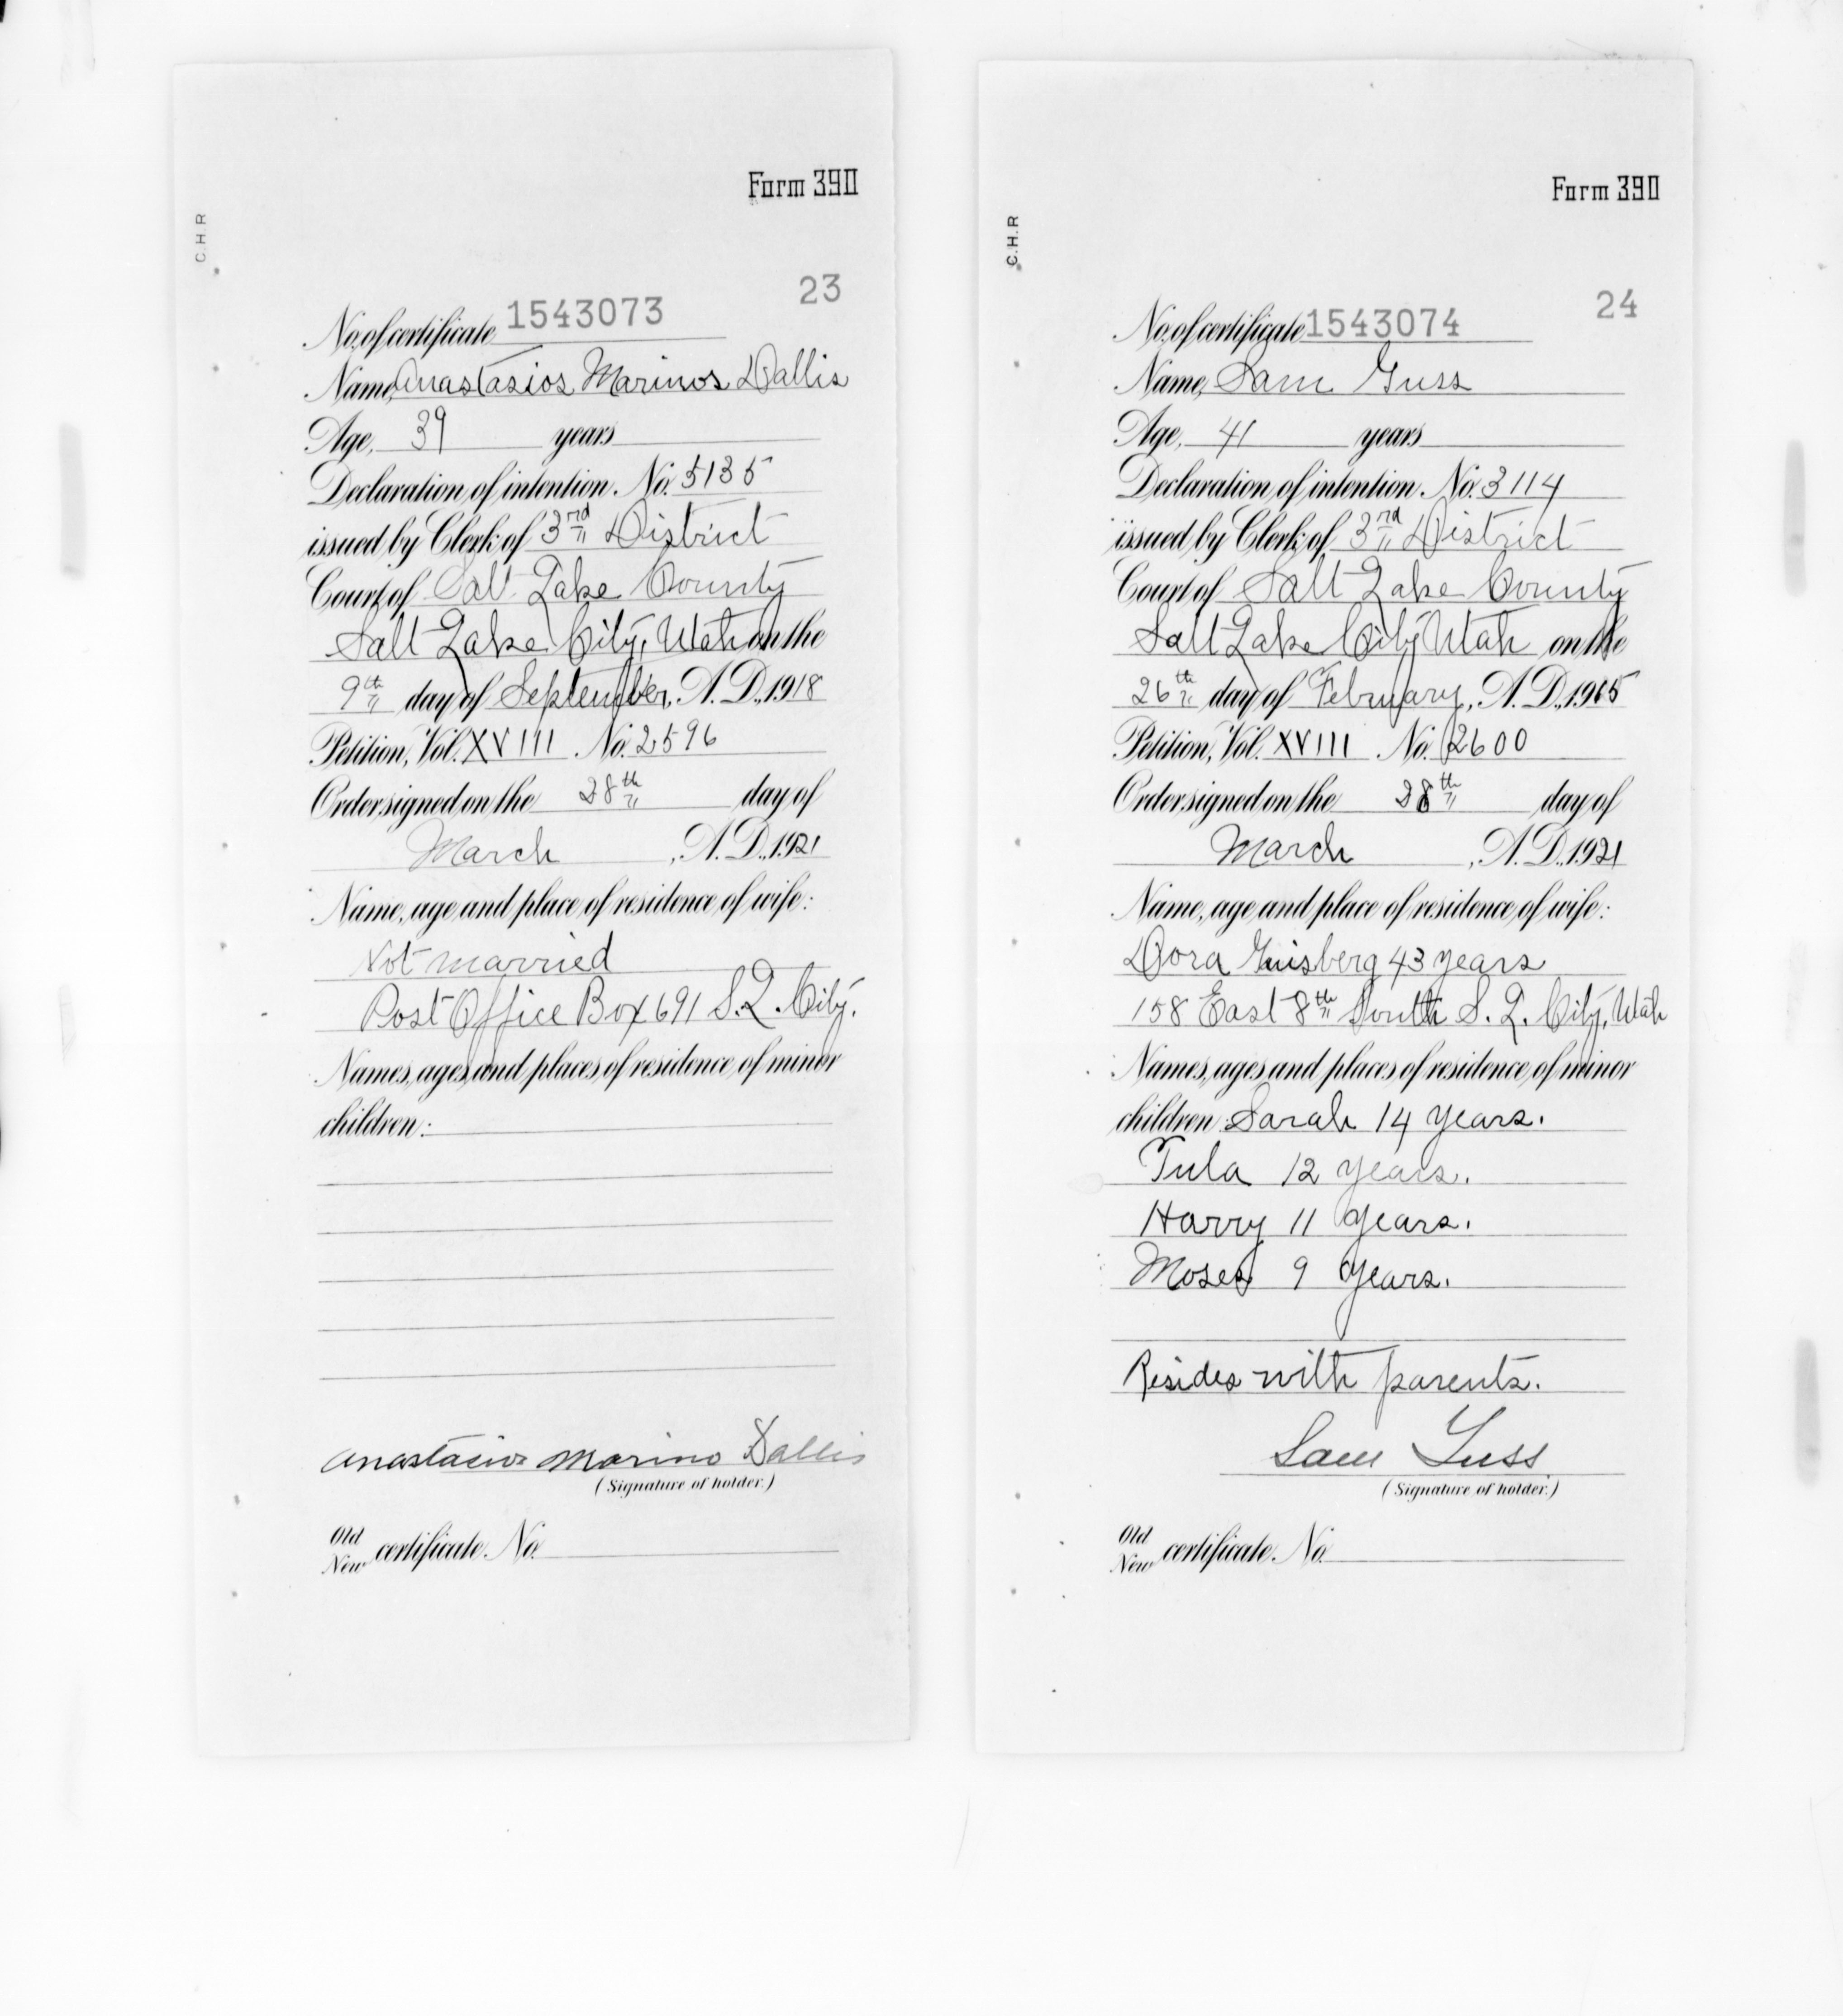 Form 390
C.H.R
23
No. of certificate 1543073
Name, Anastasios Marinos Dallis
Age, 39 years
Declaration of intention. No. 5135
issued by Clerk of 3rd District
Court of Salt Lake County
Salt Lake City, Utah on the
9th day of September, A. D., 1918
Petition, Vol. XVIII No. 2596
Order signed on the 28th day of
March, A. D., 1921
Name, age and place of residence of wife:
Not married
Post Office Box 691 S.L. City.
Names, ages and places of residence of minor
children:
Anastasios Marino Dallis
(Signature of holder.)
Old
New certificate. No.
Form 390
C.H.R
24
No. of certificate 1543074
Name, Sam Guss
Age, 41 years
Declaration of intention. No. 3114
issued by Clerk of 3rd District
Court of Salt Lake County
Salt Lake City Utah on the
26th day of February, A. D.,
Petition, Vol. XVIII No. 2600
Order signed on the 28th day of
March, A. D., 1921
Name, age and place of residence of wife:
Dora 43 years
158 East 8th South S. L. City, Utah
Names, ages and places of residence of minor
children: Sarah 14 years.
12 years.
Harry 11 years.
Moses 9 years.
Resides with parents.
Sam Guss
(Signature of holder.)
Old
New certificate. No.